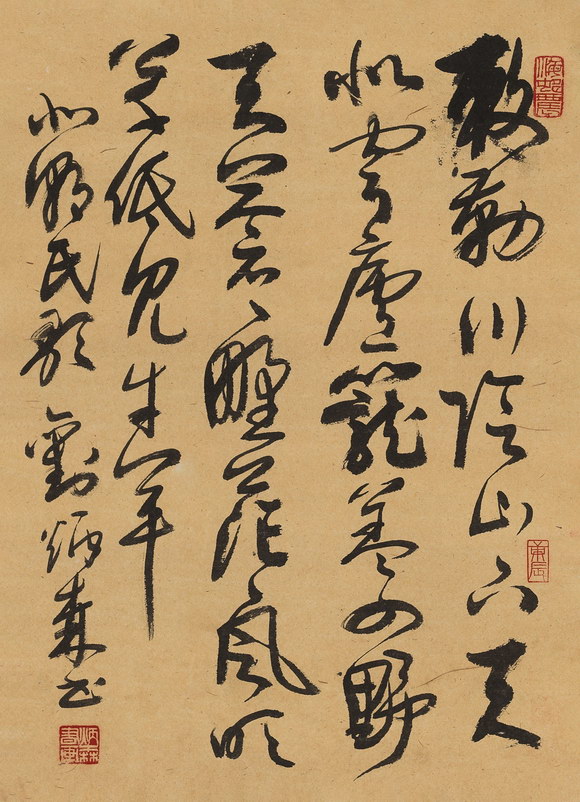 敕勒川陰山下天
似穹廬籠蓋四野
天蒼々野茫々風吹
草低見牛羊
北朝民歌 劉炳森書
庚辰